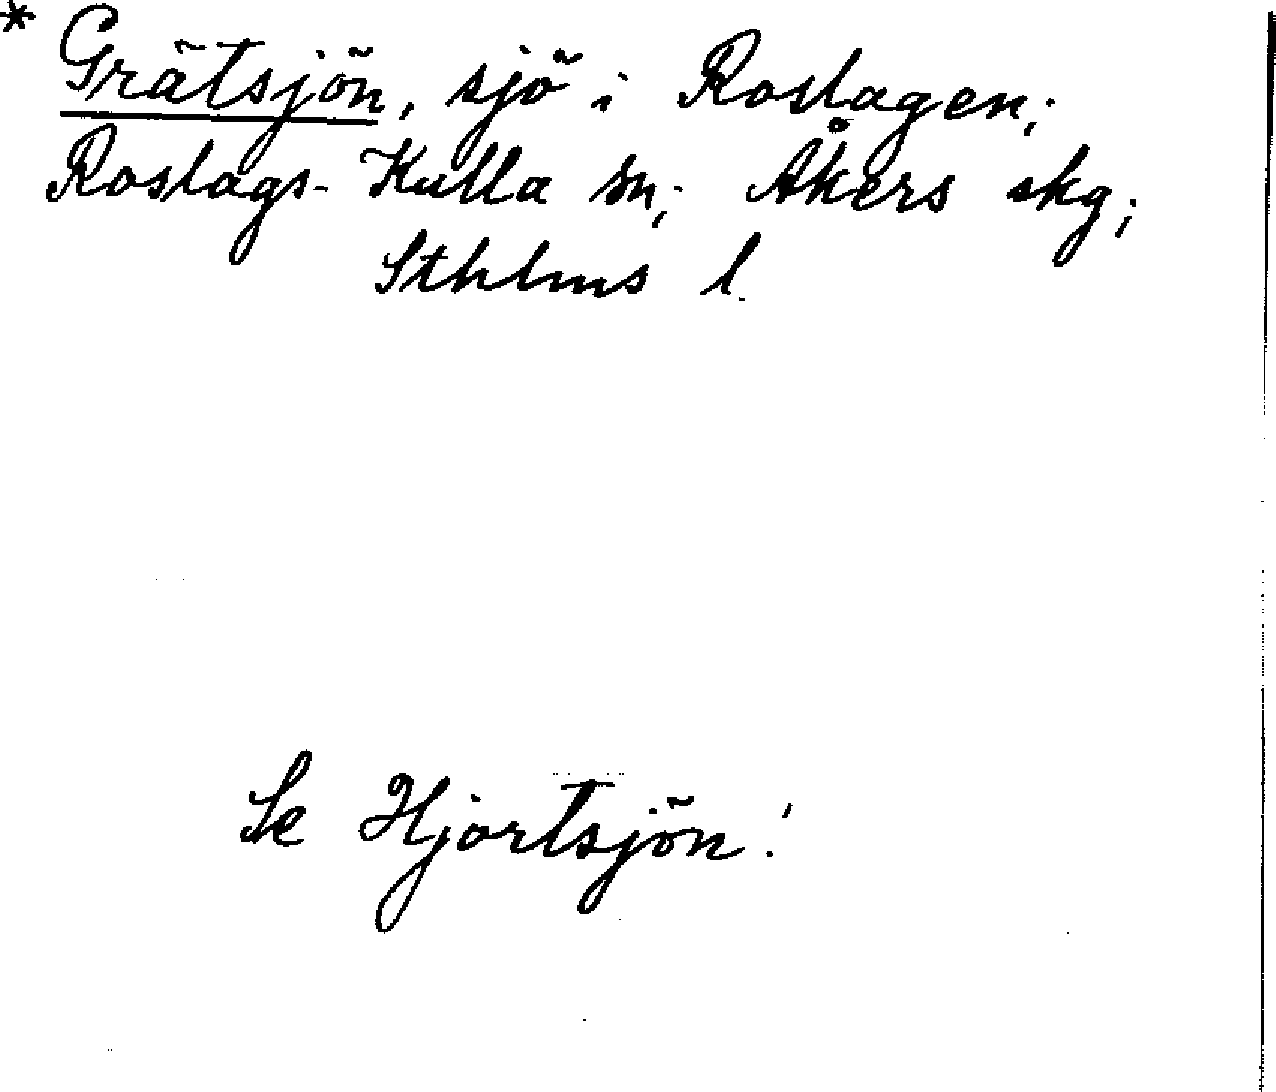 * Grätsjön, sjö i Roslagen;
Roslags-Kulla sn; Åkers skg;
Sthlms l.
Se Hjortsjön!